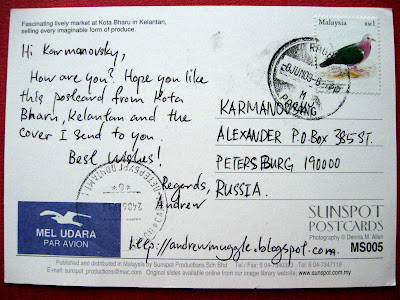 Fascinating lively market at Kota Bharu in Kelantan,
selling every imaginable form of produce.
Malaysia RM1
Hi Karmanovsky,
How are you? Hope you like
this postcard from Kota
Bharu, Kelantan and the
cover I send to you.
Best Wishes!
Regards,
Andrew
KARMANOVSKY
ALEXANDER P.O Box 385 ST.
PETERSBURG 190000
RUSSIA.
MEL UDARA
PAR AVION
SUNSPOT
POSTCARDS
Photography © Dennis M. Allan
MS005
http://andrewmuggle.blogspot.com
Published and distributed in Malaysia by Sunspot Productions Sdn Bhd
Email: sunspot_productions@mac.com Original slides available online from our image library website, www.sunspot.com.my